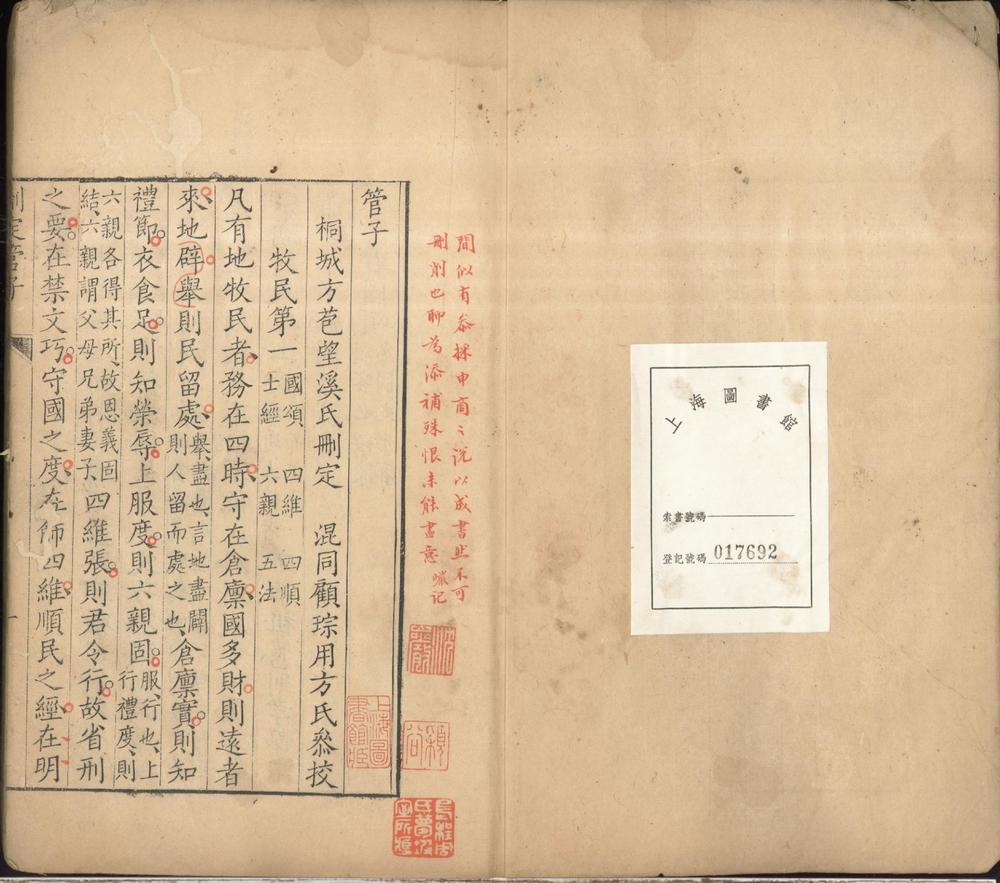 上海圖書館
索書號碼
登記號碼 017692
間似有叅採申商之說以成書然不可
刪削也聊為添補殊恨未能盡意 記
管子
桐城方苞望溪氏刪定 混同顧琮用方氏叅挍
牧民第一 國頌 四維 四順 士經 六親 五法
凡有地牧民者務在四時守在倉廩國多財則遠者
來地辟舉則民留處舉盡也言地盡闢則人留而處之也倉廩實則知
禮節衣食足則知榮辱上服度則六親固服行也上行禮度則
六親各得其所故恩義固結六親謂父母兄弟妻子四維張則君令行故省刑
之要在禁文巧守國之度在飾四維順民之經在明
刪定管子
一
上海圖書館藏
潁谷